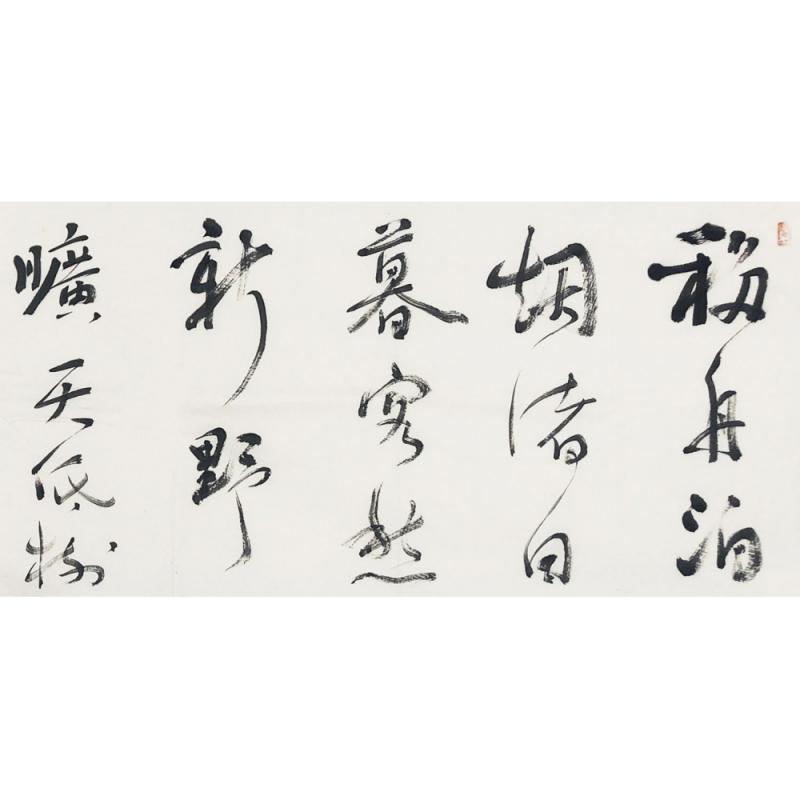 移舟泊
烟渚日
暮客愁
新野
曠天低樹